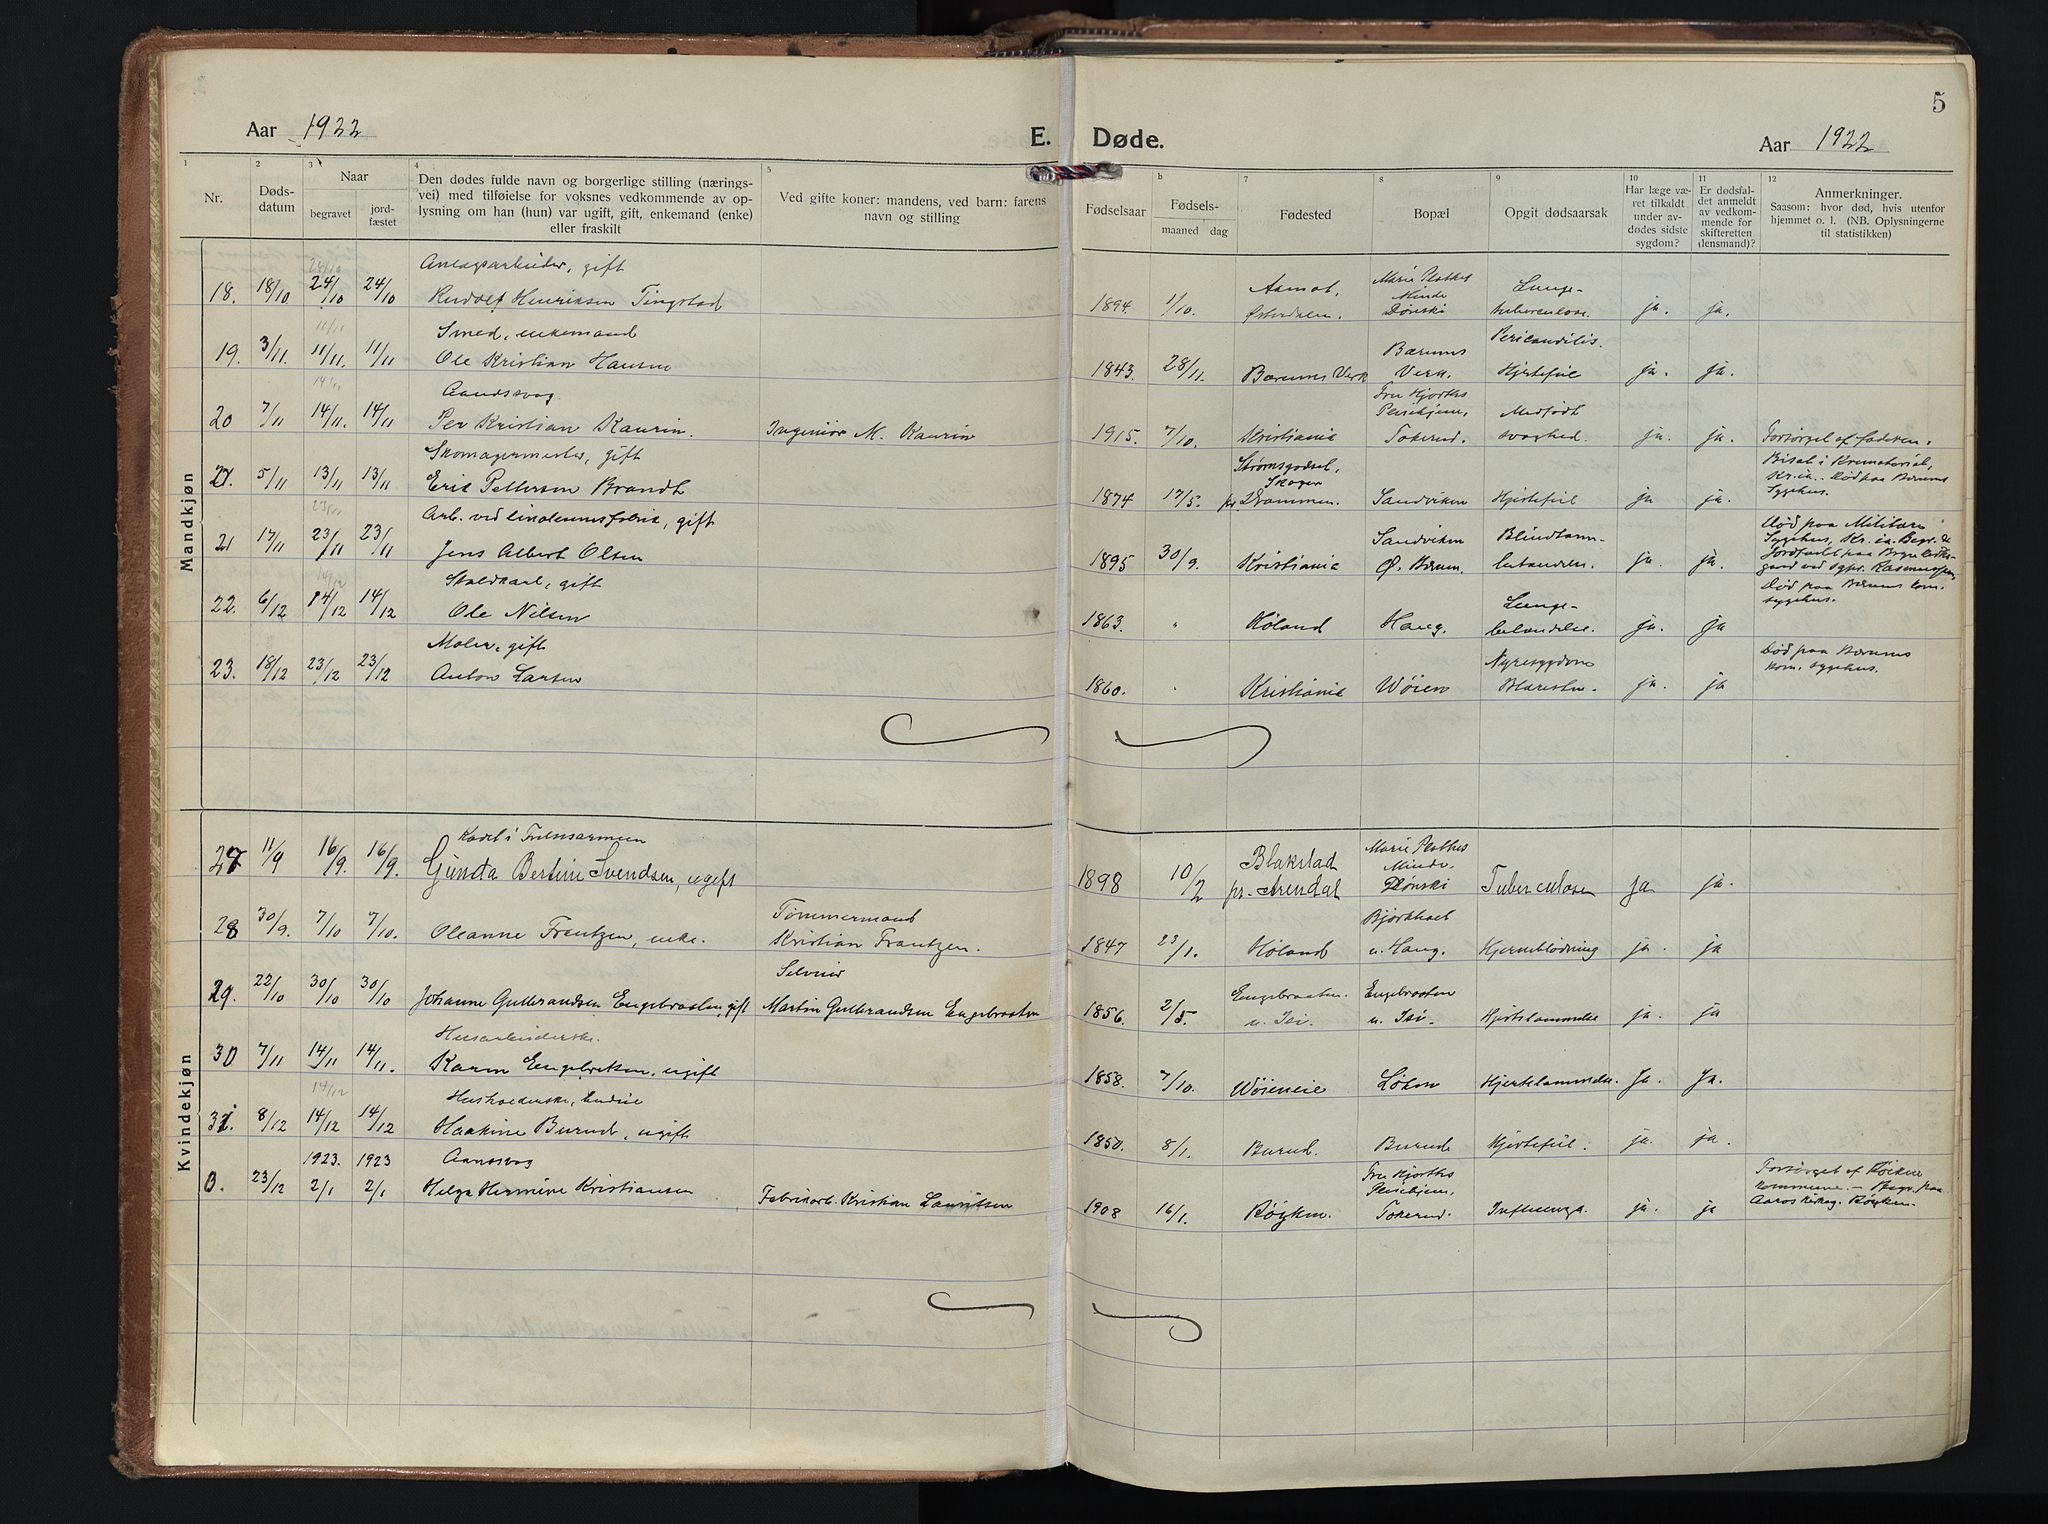 5
Aar 1922
E. Døde.
Aar 1922
1 2 3 4 5 b 7 8 9 10 11 12
Nr.
Døds-
datum
Naar
begravet
jord-
fæstet
Den dødes fulde navn og borgerlige stilling (nærings-
vei) med tilføielse for voksnes vedkommende av op-
lysning om han (hun) var ugift, gift, enkemand (enke)
eller fraskilt
Ved gifte koner: mandens, ved barn: farens
navn og stilling
Fødselsaar
Fødsels-
maaned dag
Fødested
Bopæl
Opgit dødsaarsak
Har læge væ-
ret tilkaldt
under av-
dødes sidste
sygdom?
Er dødsfal-
det anmeldt
av vedkom-
mende for
skifteretten
(lensmand)?
Anmerkninger.
Saasom: hvor død, hvis utenfor
hjemmet o. l. (NB. Oplysningerne
til statistikken)
Mandkjøn
24/10
Anlægsarbeider, gift
18. 18/10 24/10 24/10 Rudolf Henriksen Tingstad
1894. 1/10. Aamot, Østerdalen. Marie Plathes Minde Dønski Lunge-tuberculose ja. ja.
11/11
Smed, enkemand
19. 3/11. 11/11. 11/11 Ole Kristian Hansen
1843. 28/11. Bærums Verk Bærums Verk. Pericarditis. Hjertefeil ja. ja.
14/11
Aandssvag
20 7/11 14/11. 14/11 Per Kristian Kaurin. Ingeniør M. Kaurin
1915. 7/10. Kristiania Fru Hjorths Pleiehjem, Tokerud. Medfødt svaghed. ja. ja. Forsørget af faderen.
Skomagermester, gift
5/11 13/11 13/11 Eric Petterson Brandt
1874 17/5. Strømsgodset, Skoger pr. Drammen. Sandviken Hjertefeil ja ja. Bisat i Krematoriet, Kr.ia. Død paa Bærums Sygehus.
23/11
Arb. ved linoleumsfabrik, gift
21 17/11 23/11 23/11 Jens Albert Olsen
1895 30/9. Kristiania Sandviken Ø. Bærum. Blindtarm-betændelse. ja. ja. Død paa Militære Sygehus, Kr.ia. Begr. &
Jordfæstet paa Bryn kirke-
gaard ved sgpr. Rasmussen
14/12
Staldkarl, gift
22. 6/12 14/12 14/12 Ole Nilsen
1863. " Høland Haug. Lunge-betændelse. ja. ja Død paa Bærums kom. sygehus.
Maler, gift
23. 18/12 23/12 23/12 Anton Larsen
1860. " Kristiania Wøien Nyresygdom Blæresten. ja. ja Død paa Bærums kom. sygehus.
Kvindekjøn
Kadet i Frelsesarmeen
27 11/9 16/9. 16/9. Gunda Bertine Svendsen, ugift
1898 10/2 Blakstad pr. Arendal Marie Plathes Minde. Dønski Tuberculose ja ja.
28 30/9. 7/10 7/10. Oleanne Frantzen, enke. Tømmermand Kristian Frantzen.
1847 23/1. Høland Bjørkhaet u. Haug. Hjerneblødning ja. ja
29. 22/10 30/10 30/10 Johanne Gulbrandsen Engebraaten, gift Selveier Martin Gulbrandsen Engebraaten
1856. 2/5. Engebraaten. u. Isi. Engebraaten u. Isi. Hjertelammelse ja. ja
Husarbeiderske.
30 7/11 14/11 14/11. Karen Engebretsen, ugift
1858. 7/10. Wøieneie Løken Hjertelammelse. Ja. Ja.
14/12
Husholderske,
31. 8/12 14/12 14/12 Haakine Burud, ugift
1850. 8/1. Burud. Burud Hjertefeil. ja. ja.
1923. 1923 Aandssvag
0. 23/12 2/1 2/1 Helga Hermine Kristiansen Fabrikarb. Kristian Lauritsen
1908 16/1. Røyken. Fru Hjorths Pleiehjem, Tokerud. Influenza. ja. ja Forsørget af Røiken
kommune. – Begr. paa
Aaros kirkeg. Røyken.